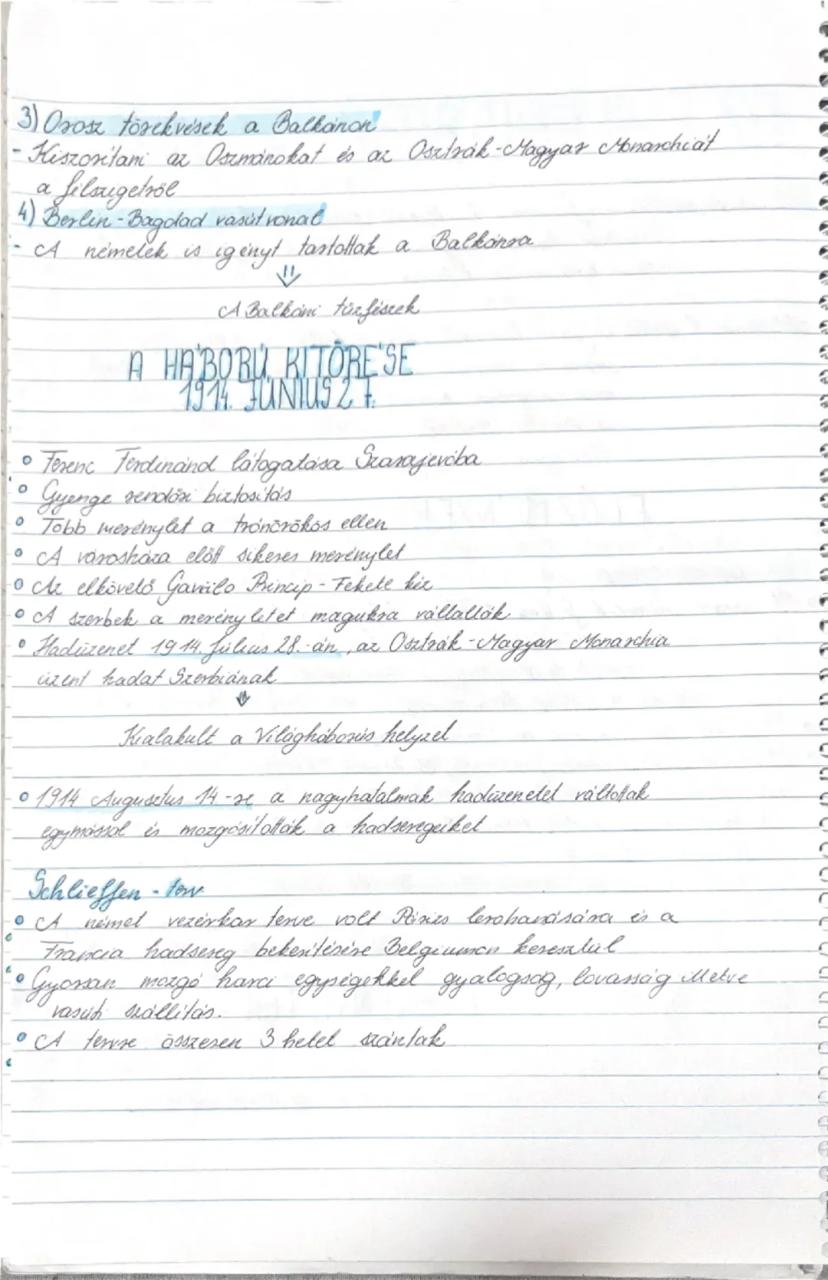 3) Orosz törekvések a Balkánon
- Kiszorítani az Oszmánokat és az Osztrák-Magyar Monarchiát
a félszigetről
4) Berlin-Bagdad vasútvonal
- A németek is igényt tartottak a Balkánra
A Balkáni tűzfészek
A HÁBORÚ KITÖRÉSE
1914. JÚNIUS 27.
Ferenc Ferdinánd látogatása Szarajevóba
Gyenge rendőri biztosítás
Több merénylet a trónörökös ellen
A városháza előtt sikeres merénylet
Az elkövető Gavrilo Princip-Fekete kéz
A szerbek a merényletet magukra vállalták
Hadüzenet 1914. Július 28.-án, az Osztrák-Magyar Monarchia
üzent hadat Szerbiának
Kialakult a Világháborús helyzet
1914 Augusztus 14-re a nagyhatalmak hadüzenetet váltottak
egymással és mozgósították a hadseregeiket
Schlieffen-terv
A német vezérkar terve volt Párizs lerohanására és a
Francia hadsereg bekerítésére Belgiumon keresztül
Gyorsan mozgó harci egységekkel gyalogság, lovasság illetve
vasúti szállítás.
A tervre összesen 3 hetet szántak